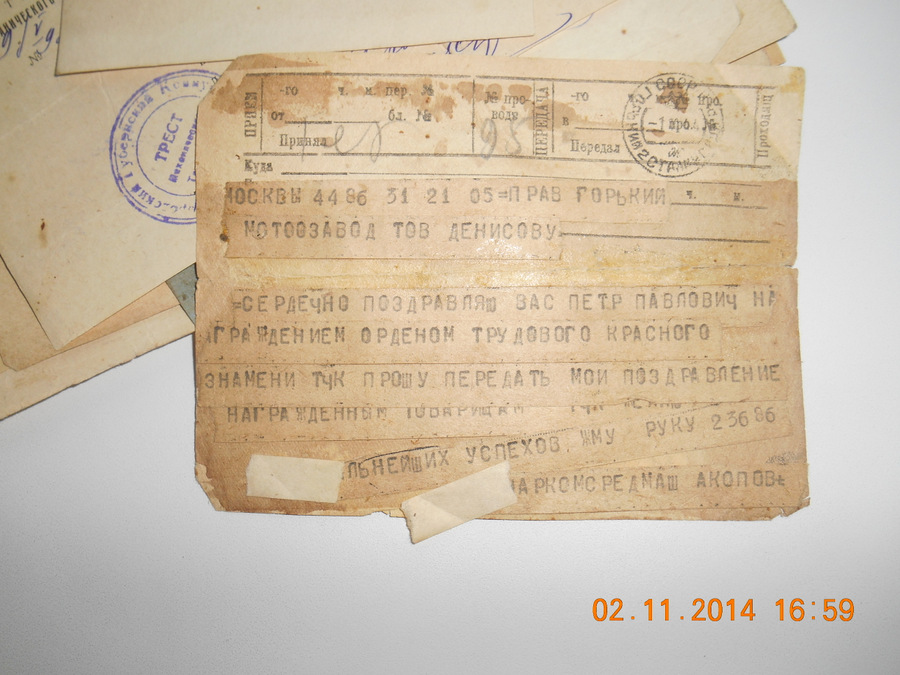 ТРЕСТ
ПРИЕМ
-го ч. м. пер. №
от бл. №
Принял
№ про-
вода
95
ПЕРЕДАЧА
-го
в
Передал
Проходящ
Куда
ч. м.
МОСКВЫ 4486 31 21 05=ПРАВ ГОРЬКИЙ
МОТООЗАВОД ТОВ ДЕНИСОВУ
=СЕРДЕЧНО ПОЗДРАВЛЯШ ВАС ПЕТР ПАВЛОВИЧ НА
ГРАЖДЕНИЕМ ОРДЕНОМ ТРУДОВОГО КРАСНОГО
ЗНАМЕНИ ТЧК ПРОШУ ПЕРЕДАТЬ МОИ ПОЗДРАВЛЕНИЕ
НАГРАЖДЕННЫМ ТОВАРИЩАМ
ЛЬНЕЙШИХ УСПЕХОВ, ЖМУ РУКУ 23686
АРКОМСРЕДМАШ АКОПОВ
02.11.2014 16:59